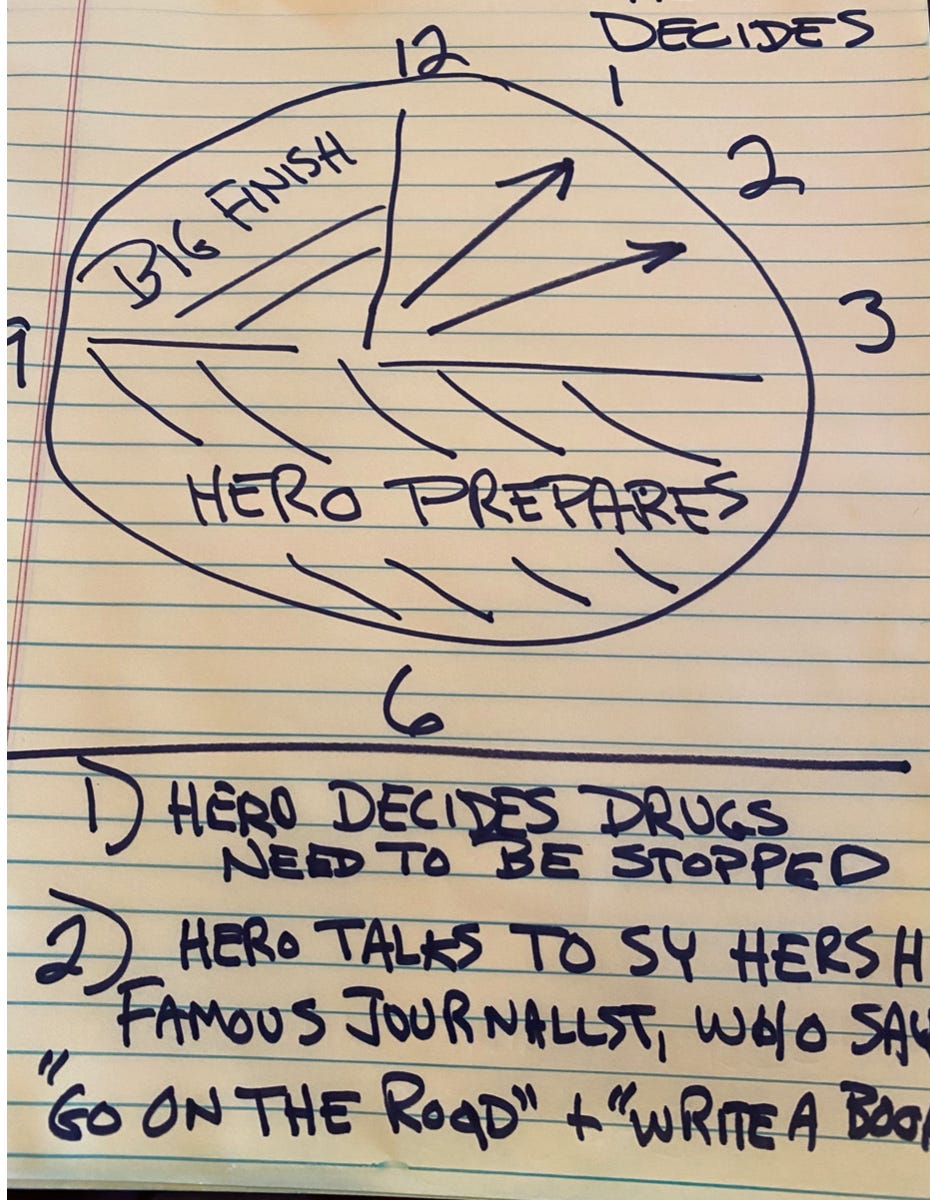 DECIDES
12
1
2
BIG FINISH
3
9
HERO PREPARES
6
1) HERO DECIDES DRUGS
NEED TO BE STOPPED
2) HERO TALKS TO SY HERSH
FAMOUS JOURNALIST, WHO SAY
"GO ON THE ROAD" + "WRITE A BOO